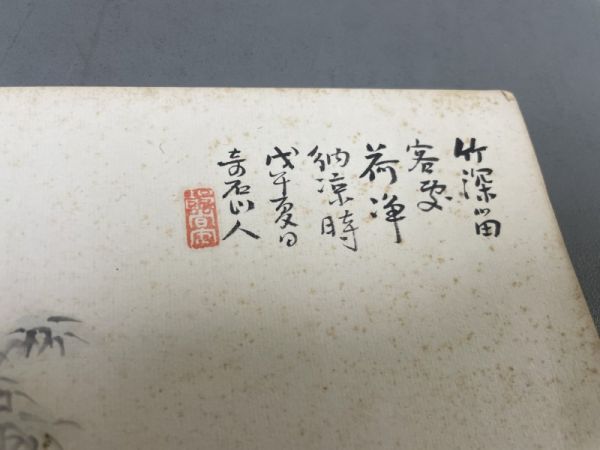 竹深留
客處
荷淨
納凉時
戊午夏日
奇石山人